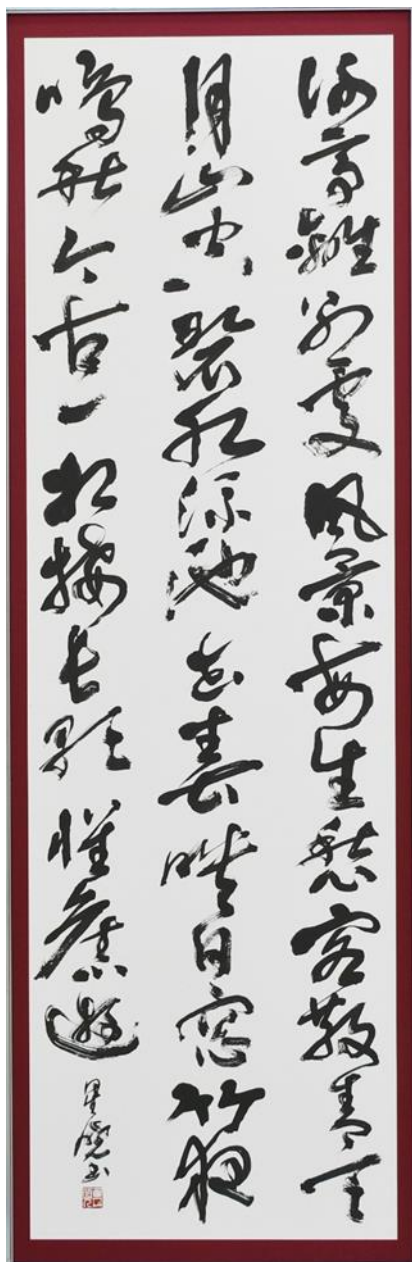 謝亭離別處風景每生愁客散青天
月山空碧水流池花春映日窗竹夜
鳴秋今古一相接長歌懷舊遊
星 書